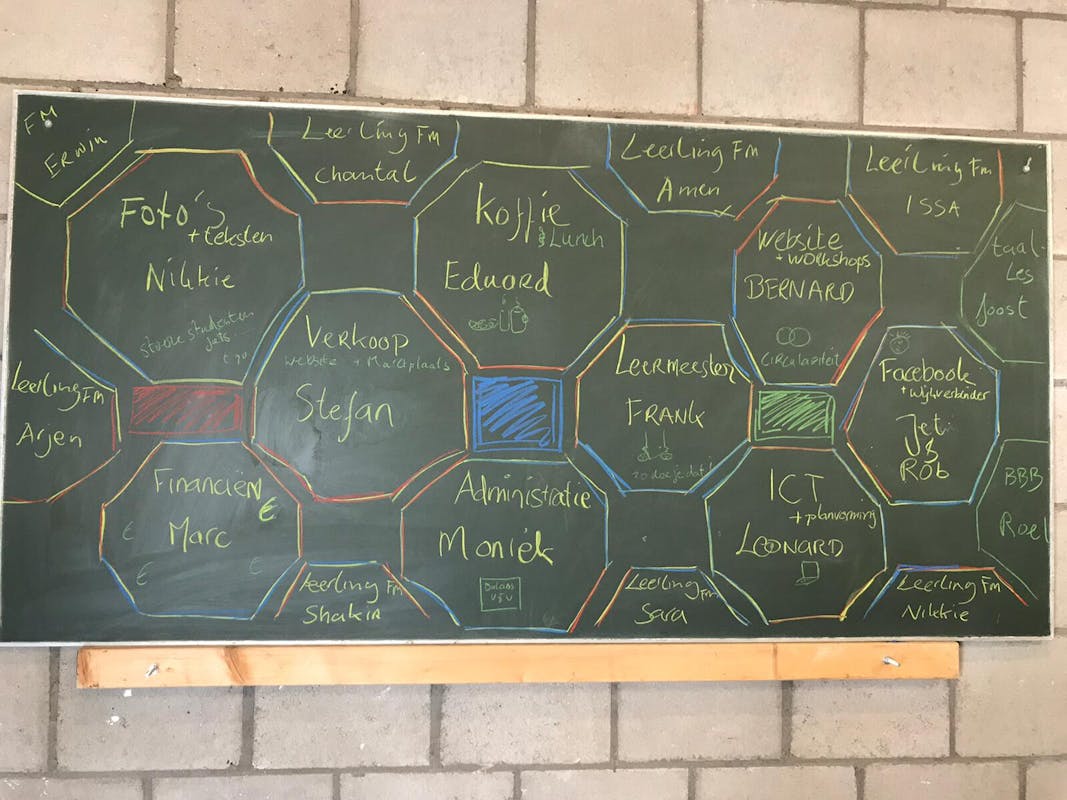 FM
Erwin
Leerling Fm
chantal
Leerling Fm
Amen
Leeilning Fm
ISSA
Foto's
+ teksten
Nikkie
Koffie
& Lunch
Eduard
website
+ workshops
BERNARD
Circulariteit
taal-
Les
Joost
Verkoop
website + Marktplaats
Stefan
Leermeester
FRANK
zo doe je dat!
Facebook
+ wijkverbinder
Jet
Rob
Leerling Fm
Arjen
Financiën
€
Marc
€
€
€
Administratie
Moniek
Balans
V&V
ICT
+ planvorming
LEONARD
BBB
Roel
Leerling Fm
Shakir
Leerling Fm
Sara
Leerling Fm
Nikkie